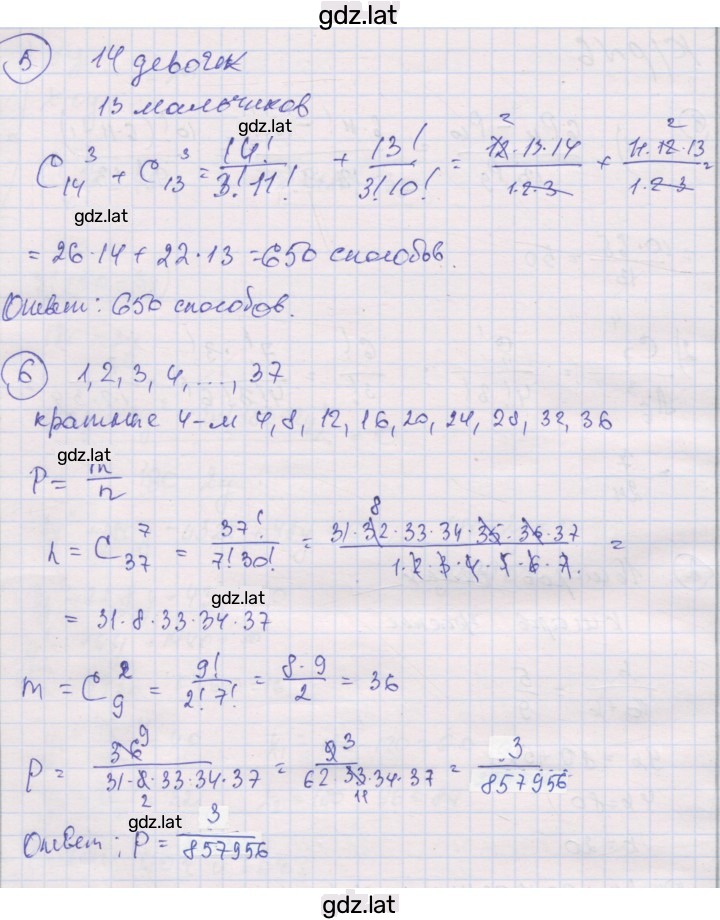 gdz.lat
5 14 девочек
gdz.lat
13 мальчиков
gdz.lat
C₁₄³ + C₁₃³ = 14!/(3!11!) + 13!/(3!10!) = (12·13·14)/(1·2·3) + (11·12·13)/(1·2·3) =
gdz.lat
= 26·14 + 22·13 = 650 способов.
gdz.lat
Ответ: 650 способов.
gdz.lat
6 1, 2, 3, 4, ..., 37
кратные 4-м 4, 8, 12, 16, 20, 24, 28, 32, 36
gdz.lat
P = m/n
gdz.lat
n = C₃₇⁷ = 37!/(7!30!) = (31·32·33·34·35·36·37)/(1·2·3·4·5·6·7) =
gdz.lat
= 31·8·33·34·37
gdz.lat
m = C₉² = 9!/(2!7!) = (8·9)/2 = 36
gdz.lat
P = 36/(31·8·33·34·37) = 9/(62·33·34·37) = 3/857956
gdz.lat
Ответ: P = 3/857956
gdz.lat